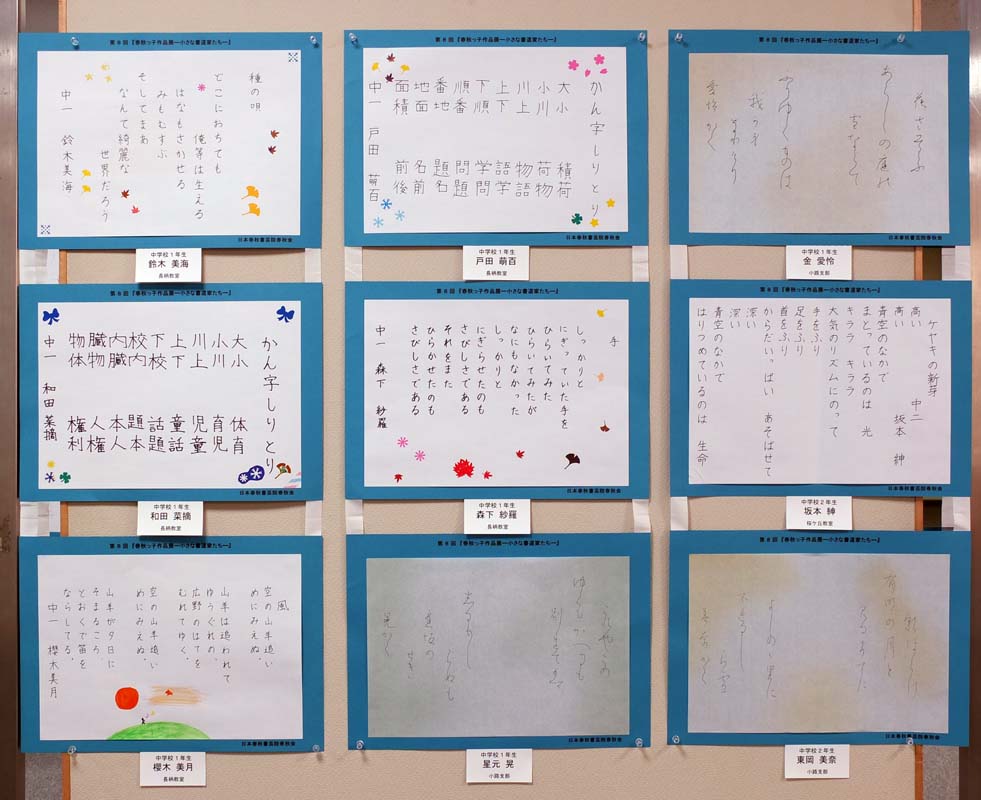 第8回『春秋っ子作品展―小さな書道家たち―』
種の唄
どこにおちても
俺等は生える
はなもさかせる
みもむすぶ
そしてまあ
なんて綺麗な
世界だろう
中一 鈴木美海
日本春秋書芸院春秋会
中学校1年生
鈴木 美海
長柄教室
第8回『春秋っ子作品展―小さな書道家たち―』
かん字しりとり
大小 積荷
小川 荷物
川上 物語
上下 語学
下順 学問
順番 問題
番地 題名
地面 名前
面積 前後
中一 戸田 萌百
日本春秋書芸院春秋会
中学校1年生
戸田 萌百
長柄教室
第8回『春秋っ子作品展―小さな書道家たち―』
花さそふ
あらしの庭の
雪ならで
ふりゆくものは
我が身
なりけり
愛怜かく
中学校1年生
金 愛怜
小路支部
第8回『春秋っ子作品展―小さな書道家たち―』
かん字しりとり
大小 体育
小川 育児
川上 児童
上下 童話
下校 話題
校内 題本
内臓 本人
臓物 人権
物体 権利
中一 和田 菜摘
日本春秋書芸院春秋会
中学校1年生
和田 菜摘
長柄教室
第8回『春秋っ子作品展―小さな書道家たち―』
手
しっかりと
にぎっていた手を
ひらいてみた
ひらいてみたが
なにもなかった
しっかりと
にぎらせたのも
さびしさである
それをまた
ひらかせたのも
さびしさである
中一 森下 紗羅
日本春秋書芸院春秋会
中学校1年生
森下 紗羅
長柄教室
第8回『春秋っ子作品展―小さな書道家たち―』
ケヤキの新芽
中二 坂本 紳
高い
高い
青空のなかで
まとっているのは 光
キララ キララ
大気のリズムにのって
手をふり
足をふり
首をふり
からだいっぱい あそばせて
深い
深い
青空のなかで
はりつめているのは 生命
日本春秋書芸院春秋会
中学校2年生
坂本 紳
桜ケ丘教室
第8回『春秋っ子作品展―小さな書道家たち―』
風
空の山羊追い
めにみえぬ、
山羊は追われて
ゆうぐれの、
広野のはてを
むれてゆく、
空の山羊追い
めにみえぬ、
山羊が夕日に
そまるころ、
とおくで笛を
ならしてる、
中一 櫻木美月
日本春秋書芸院春秋会
中学校1年生
櫻木 美月
長柄教室
第8回『春秋っ子作品展―小さな書道家たち―』
これやこの
ゆくもかへるも
別れては
しるも
しらぬも
逢坂の
せき
晃かく
日本春秋書芸院春秋会
中学校1年生
星元 晃
小路支部
第8回『春秋っ子作品展―小さな書道家たち―』
朝ぼらけ
有明の月と
みるまでに
よしのの里に
ふれる
白雪
美奈かく
日本春秋書芸院春秋会
中学校2年生
東岡 美奈
小路支部